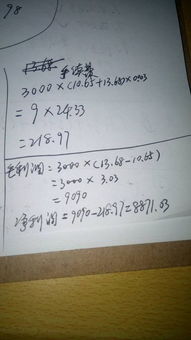 98
手续费
3000×(10.65+13.68)×0.03
=9×24.33
=218.97
毛利润=3000×(13.68-10.65)
=3000×3.03
=9090
净利润=9090-218.97=8871.03